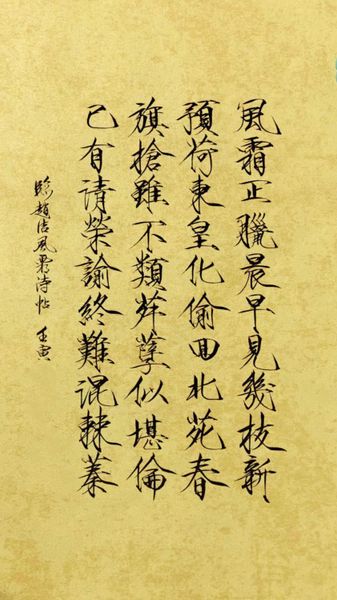 風霜正臘晨早見幾枝新
預荷東皇化偷回北苑春
旗搶雖不類荈孽似堪倫
已有请榮諭終難混棘蓁
臨趙佶風霜诗帖 壬寅